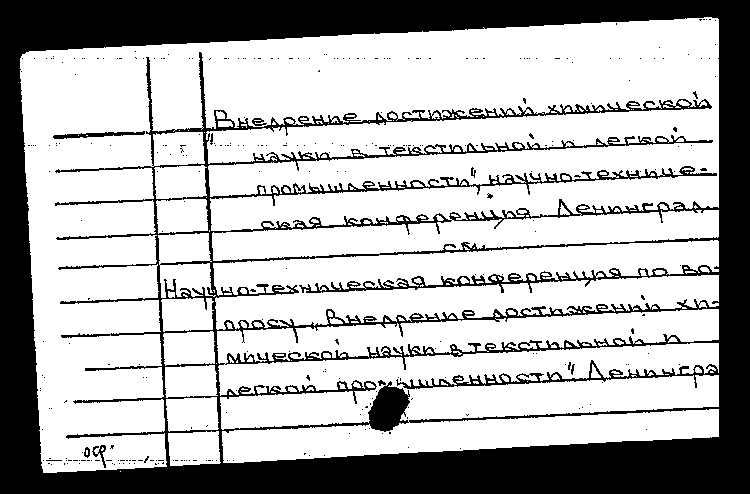 "Внедрение достижений химической
науки в текстильной и легкой
промышленности", научно-техниче-
ская конференция. Ленинград.
см.
Научно-техническая конференция по во-
просу „Внедрение достижений хи-
мической науки в текстильной и
легкой промышленности". Ленингра